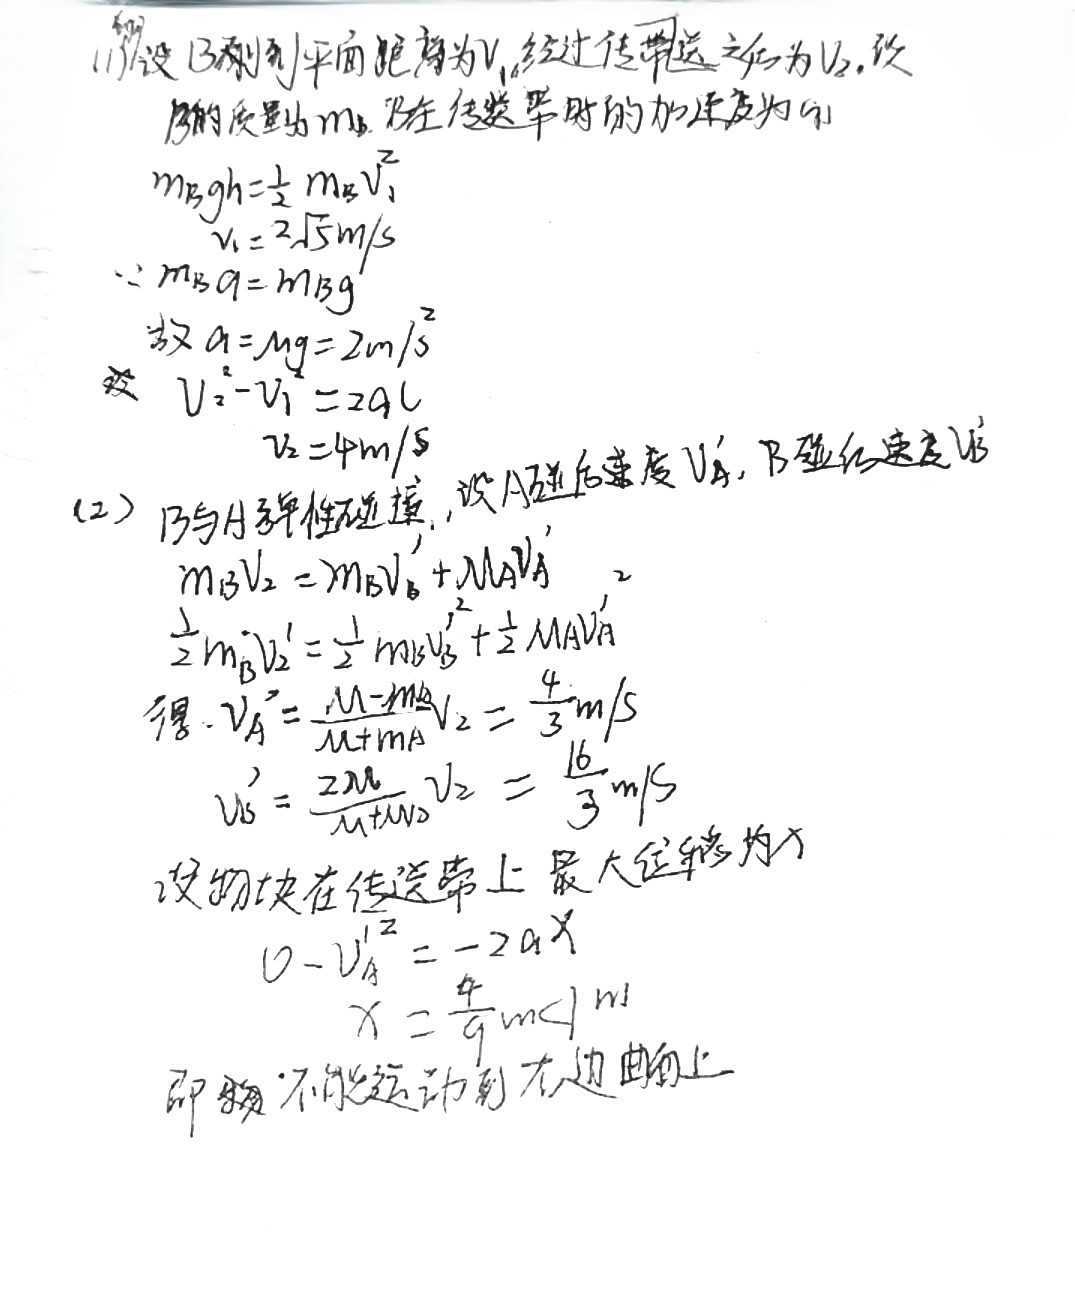 (1)设B刚到平面距离为V₁,经过传带送之后为V₂.设
B的质量为m_B.B在传送带时的加速度为a
m_Bgh=½m_BV₁²
v₁=2√5m/s
∵m_Ba=m_Bg
故a=μg=2m/s²
V₂²-V₁²=2al
v₂=4m/s
(2) B与A弹性碰撞,设A碰后速度V_A′,B碰后速度V_B′
m_BV₂=m_BV_B′+M_AV_A′
½m_BV₂′=½m_BV_B′²+½M_AV_A′²
得.V_A′=(M-m_A)/(M+m_A)V₂=4/3m/s
V_B′=2M/(M+M)V₂=16/3m/s
设物块在传送带上最大位移为x
0-V_A′²=-2ax
x=4/9m<1m
即物不能运动到右边曲面上